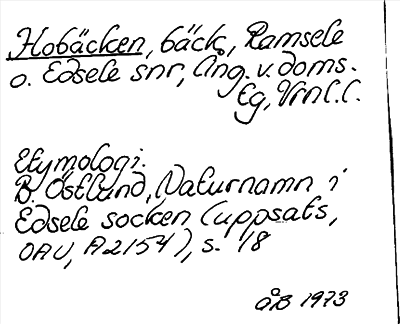 Hobäcken, bäck, Ramsele
o. Edsele snr, Ång. v. doms.
Eg, Vrnl.l.
Etymologi:
B. Östlund, Naturnamn i
Edsele socken (uppsats,
OAU, A2154), s. 18
åB 1973